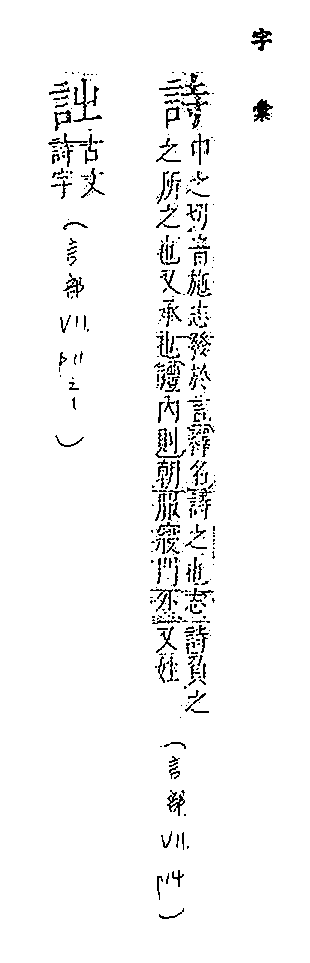 字彙
詩
巾之切音施志發於言釋名詩之也志詩負之
之所之也又承也禮內則朝服寢門外又姓
(言部 VII. p14)
𧥳
古文
詩字
(言部 VII. p11之1)